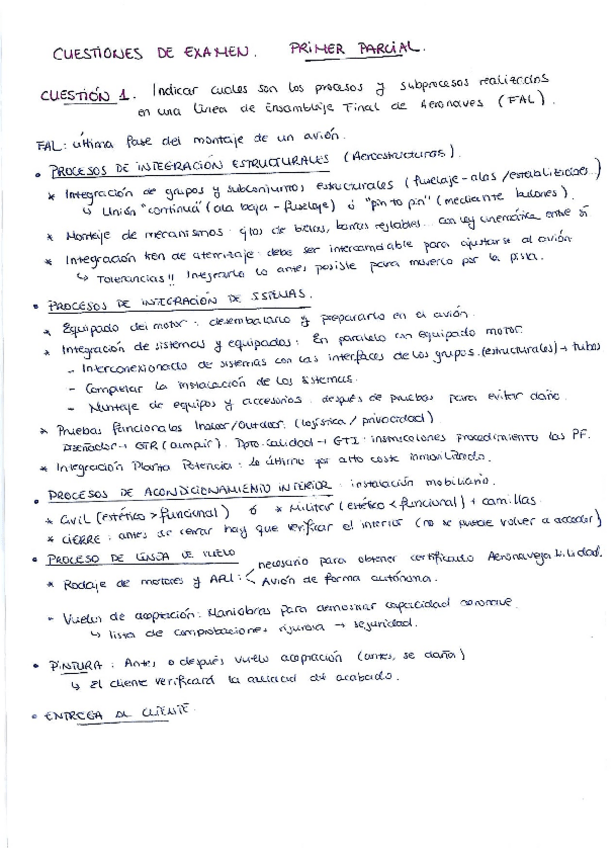 CUESTIONES DE EXAMEN. PRIMER PARCIAL.
CUESTIÓN 1. Indicar cuales son los procesos y subprocesos realizados
en una línea de Ensamblaje Final de Aeronaves (FAL).
FAL: última fase del montaje de un avión.
• PROCESOS DE INTEGRACIÓN ESTRUCTURALES (Aeroestructuras).
* Integración de grupos y subconjuntos estructurales (fuselaje-alas/estabilizador)
↳ Unión "continua" (ala baja - fuselaje) ó "pin to pin" (mediante bulones).
* Montaje de mecanismos: barras reglables... con ley cinemática entre sí
* Integración tren de aterrizaje: debe ser intercambiable para ajustarse al avión.
↳ Tolerancias!! Integrarlo lo antes posible para moverlo por la pista.
• PROCESOS DE INTEGRACIÓN DE SISTEMAS.
* Equipado del motor: desembalarlo y prepararlo en el avión.
* Integración de sistemas y equipados: En paralelo con equipado motor.
- Interconexionado de sistemas con las interfaces de los grupos (estructurales) → tubos
- Completar la instalación de los sistemas.
- Montaje de equipos y accesorios: después de pruebas para evitar daño.
* Pruebas funcionales Indoor/Outdoor. (logística / privacidad)
Diseñador → GTR (cumplir). Dpto. Calidad → GTI: instrucciones procedimiento las PF.
* Integración Planta Potencia: lo último por alto coste inmovilizado.
• PROCESOS DE ACONDICIONAMIENTO INTERIOR: instalación mobiliario.
* Civil (estético > funcional) ó * Militar (estético < funcional) + camillas.
* CIERRE: antes de cerrar hay que verificar el interior (no se puede volver a acceder)
• PROCESO DE LÍNEA DE VUELO
* Rodaje de motores y APU: < necesario para obtener certificado Aeronavegabilidad.
Avión de forma autónoma.
- Vuelos de aceptación: Maniobras para demostrar capacidad aeronave.
↳ lista de comprobaciones rigurosa → seguridad.
• PINTURA: Antes o después vuelo aceptación (antes, se daña)
↳ El cliente verificará la calidad de acabado.
• ENTREGA AL CLIENTE.